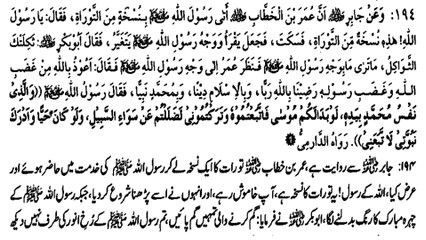 ١٩٤: وَعَنْ جَابِرٍ ﷺ أَنَّ عُمَرَ بْنَ الْخَطَّابِ ﷺ أَتَى رَسُولَ اللَّهِ ﷺ بِنُسْخَةٍ مِنَ التَّوْرَاةِ، فَقَالَ: يَا رَسُولَ
اللَّهِ! هٰذِهِ نُسْخَةٌ مِنَ التَّوْرَاةِ، فَسَكَتَ، فَجَعَلَ يَقْرَأُ وَوَجْهُ رَسُولِ اللَّهِ ﷺ يَتَغَيَّرُ، فَقَالَ أَبُوبَكْرٍ: ثَكِلَتْكَ
الثَّوَاكِلُ، مَاتَرَى مَا بِوَجْهِ رَسُولِ اللَّهِ ﷺ فَنَظَرَ عُمَرُ إِلَى وَجْهِ رَسُولِ اللَّهِ ﷺ فَقَالَ: أَعُوذُ بِاللَّهِ مِنْ غَضَبِ
اللَّهِ وَغَضَبِ رَسُولِهِ رَضِينَا بِاللَّهِ رَبًّا، وَبِالْإِسْلَامِ دِينًا، وَبِمُحَمَّدٍ نَبِيًّا، فَقَالَ رَسُولُ اللَّهِ ﷺ: ((وَالَّذِي
نَفْسُ مُحَمَّدٍ بِيَدِهِ، لَوْ بَدَا لَكُمْ مُوسٰى فَاتَّبَعْتُمُوهُ وَتَرَكْتُمُونِي لَضَلَلْتُمْ عَنْ سَوَاءِ السَّبِيلِ، وَلَوْ كَانَ حَيًّا وَأَدْرَكَ
نُبُوَّتِي لَاتَّبَعَنِي)). رَوَاهُ الدَّارِمِيُّ
۱۹۴: جابر سے روایت ہے، عمر بن خطاب تورات کا ایک نسخہ لے کر رسول اللہ ﷺ کی خدمت میں حاضر ہوئے اور
عرض کیا، اللہ کے رسول! یہ تورات کا نسخہ ہے، آپ خاموش رہے، اور انہوں نے اسے پڑھنا شروع کر دیا، جبکہ رسول اللہ ﷺ کے
چہرہ مبارک کا رنگ بدلنے لگا، ابوبکر نے فرمایا: گم کرنے والی تمہیں گم پائیں، تم رسول اللہ ﷺ کے رخ انور کی طرف نہیں دیکھ